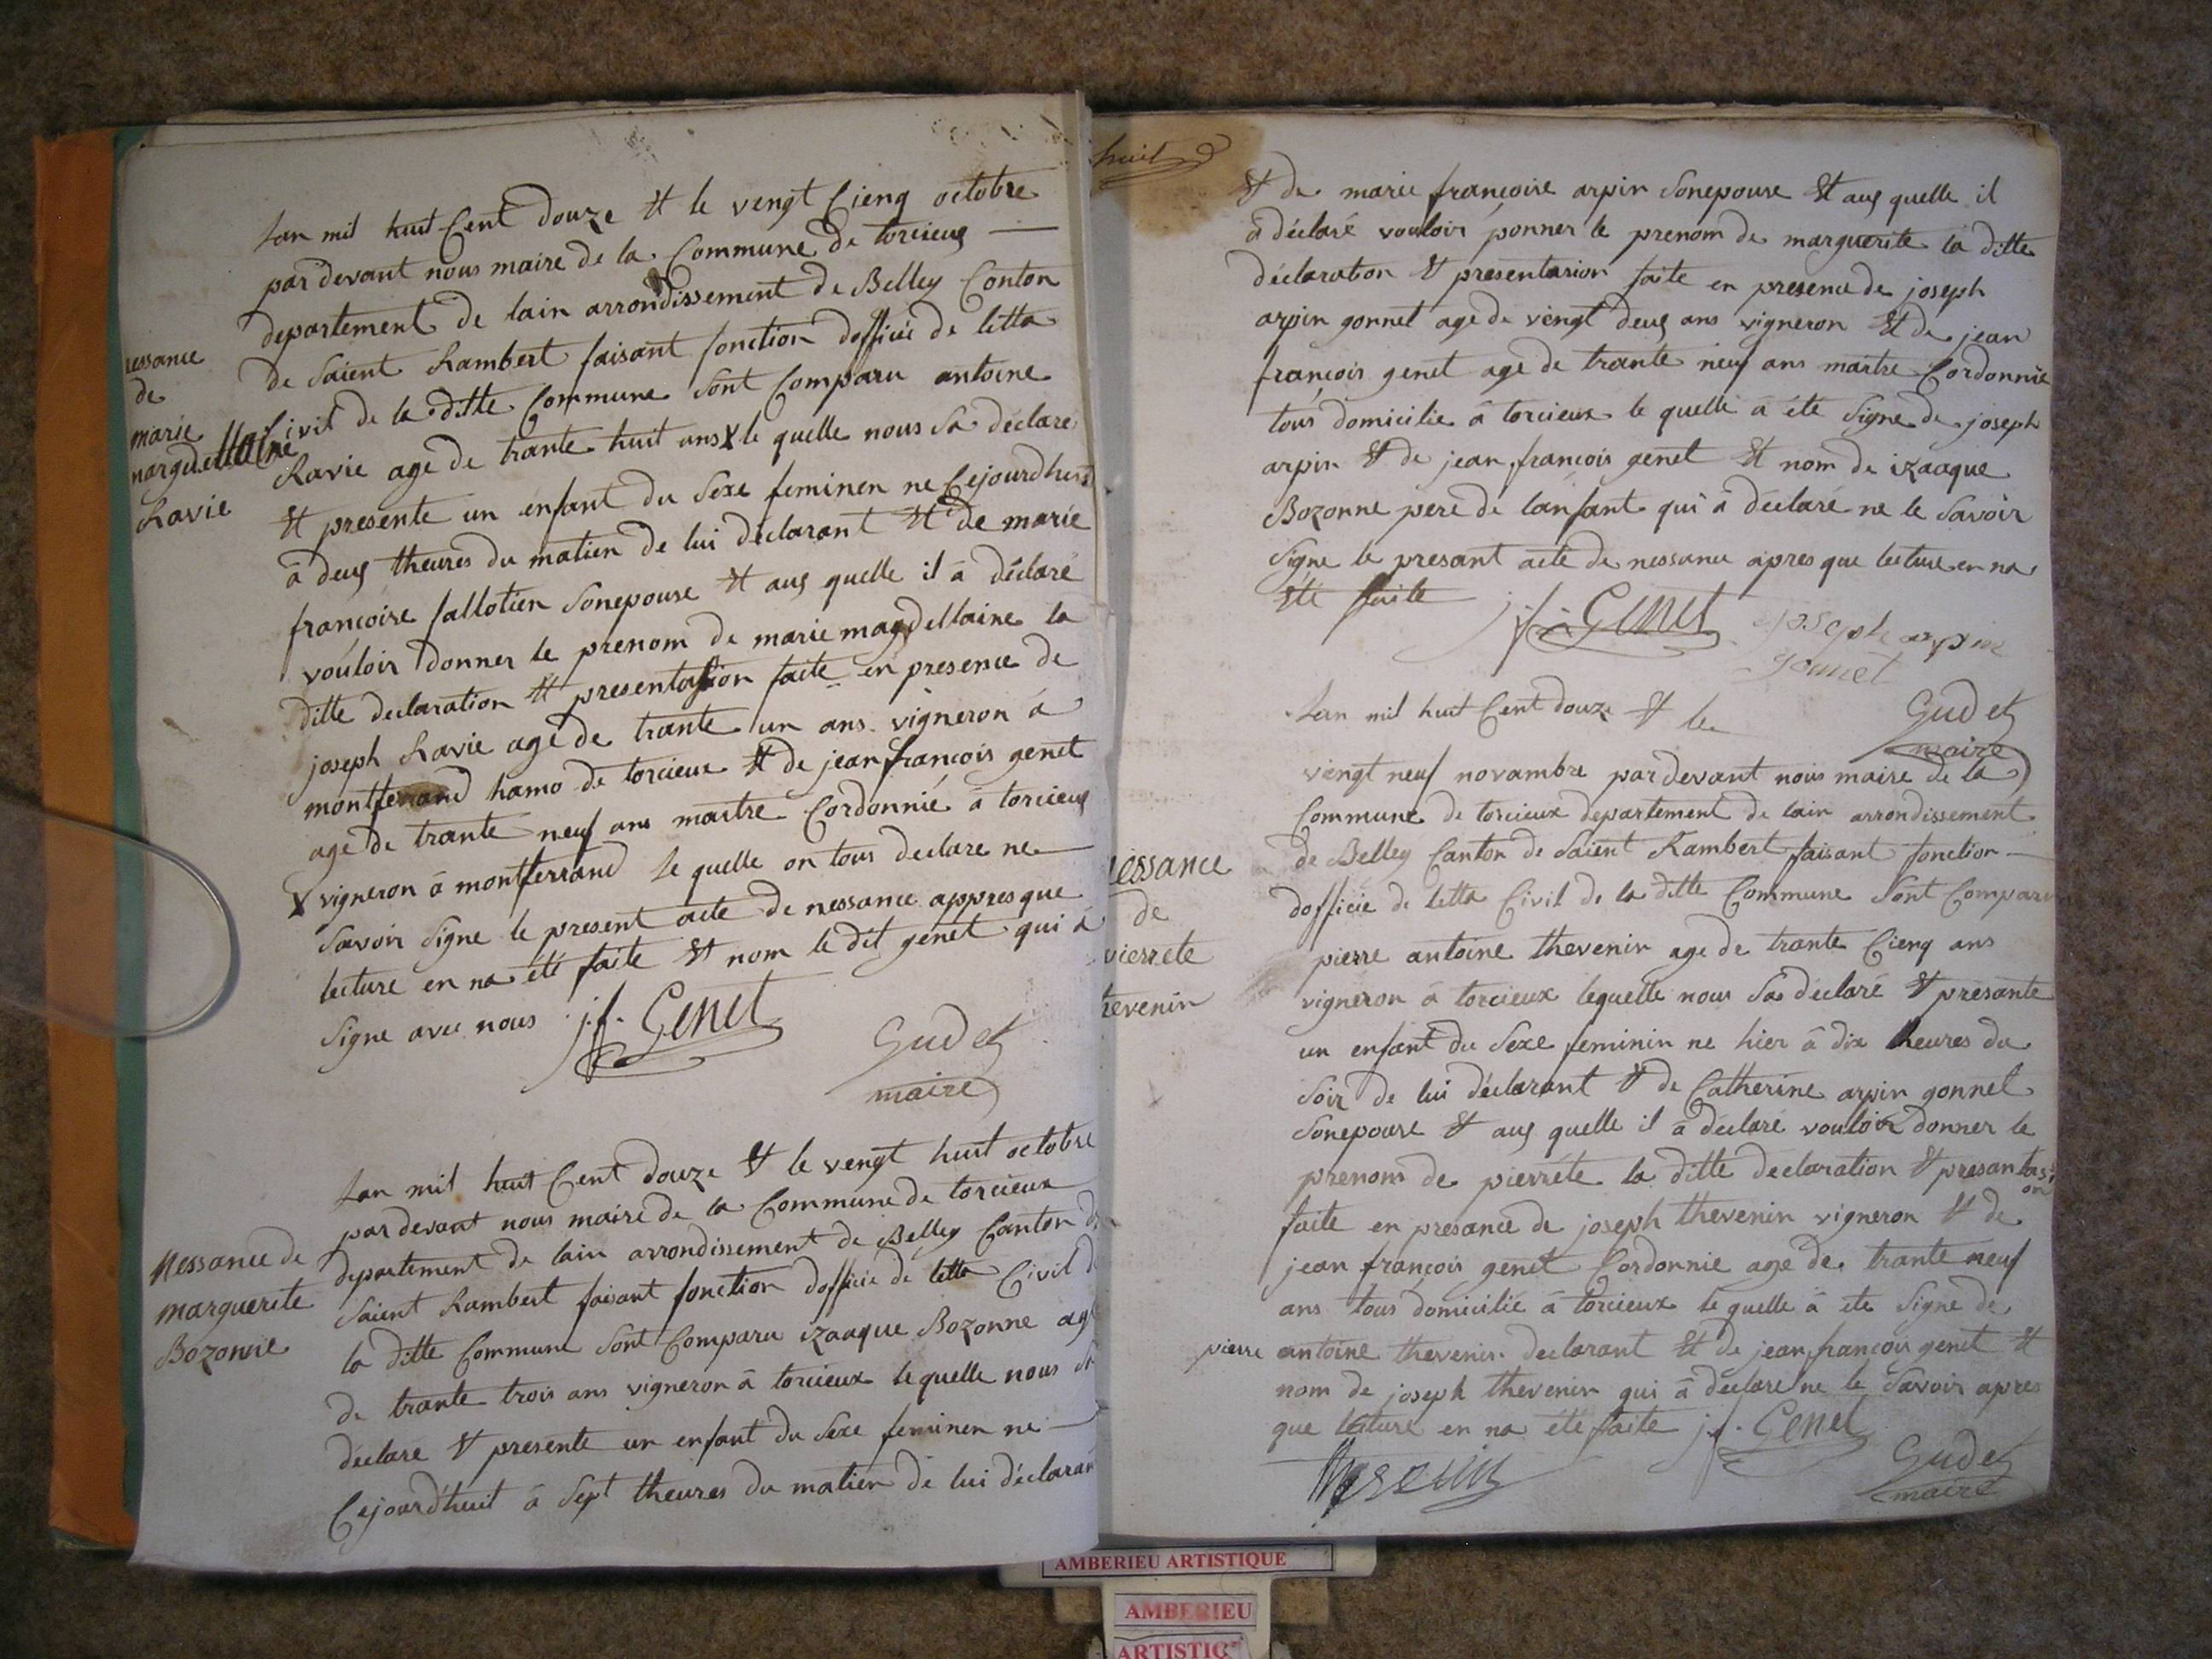 Lan mil huit Cent douze et le vengt Cienq octobre
par devant nous maire de la Commune de torcieus
departement de lain arrondissement de Belley Conton
de Saient Rambert faisant fonction dofficié de letta
Civil de la ditte Commune Sont Comparu antoine
Ravie age de trante huit ans X le quelle nous Sa déclaré
et presente un enfant du Sexe feminen ne Cejourdhui
à deus theures du matien de lui déclarant et de marie
françoise fallotien Sonepouse et aus quelle il à déclaré
vouloir donner le prenom de marie magdellaine la
ditte declaration et presentasion faite en presence de
joseph Ravie age de trante un ans vigneron à
montferrand hamo de torcieux et de jean françois genet
age de trante neuf ans maitre Cordonnié à torcieus
X vigneron à montferrand le quelle on tous declare ne
Savoir Signe le present acte de nessance appres que
lecture en na été faite et nom le dit genet qui à
Signe avec nous j.f. Genet
Gudet
maire
essance
de
marie
magdellaine
Ravie
Lan mil huit Cent douze et le vengt huit octobre
par devant nous maire de la Commune de torcieux
departement de lain arrondissement de Belley Canton de
Saient Rambert faisant fonction dofficié de letta Civil de
la ditte Commune Sont Comparu izaaque Bozonne age
de trante trois ans vigneron à torcieux le quelle nous Sa
déclaré et presente un enfant du Sexe feminen ne
Cejourdhuit à Sept theures du matien de lui déclarant
Nessance de
marguerite
Bozonne
huit
et de marie françoise arpin Sonepouse et aus quelle il
à déclaré vouloir ponner le prenom de marguerite la ditte
déclaration et presentasion faite en presence de joseph
arpin gonnet age de vengt deus ans vigneron et de jean
françois genet age de trante neuf ans maitre Cordonnié
tous domicilie à torcieux le quelle à été Signe de joseph
arpin et de jean françois genet et nom de izaaque
Bozonne pere de lanfant qui à déclaré ne le Savoir
Signe le presant acte de nessance apres que lecture en na
été faite
j.f. Genet
joseph arpin
gonnet
Gudet
maire
Lan mil huit Cent douze et le
vengt neuf novambre par devant nous maire de la
Commune de torcieux departement de lain arrondissement
de Belley Canton de Saient Rambert faisant fonction
dofficié de letta Civil de la ditte Commune Sont Comparu
pierre antoine thevenin age de trante Cienq ans
vigneron à torcieux lequelle nous Sa déclaré et presante
un enfant du Sexe feminin ne hier à dix heures du
Soir de lui déclarant et de Catherine arpin gonnet
Sonepouse et aus quelle il à déclaré vouloir donner le
prenom de pierréte la ditte declaration et presantasi
on
faite en presance de joseph thevenin vigneron et de
jean françois genet Cordonnie age de trante neuf
ans tous domicilié à torcieux le quelle à ete Signe de
pierre antoine thevenin declarant et de jean françois genet et
nom de joseph thevenin qui à déclare ne le Savoir apres
que lecture en na été faite j.f. Genet
Thevenin
Gudet
maire
essance
de
pierrete
hevenin
AMBERIEU ARTISTIQUE
AMBERIEU